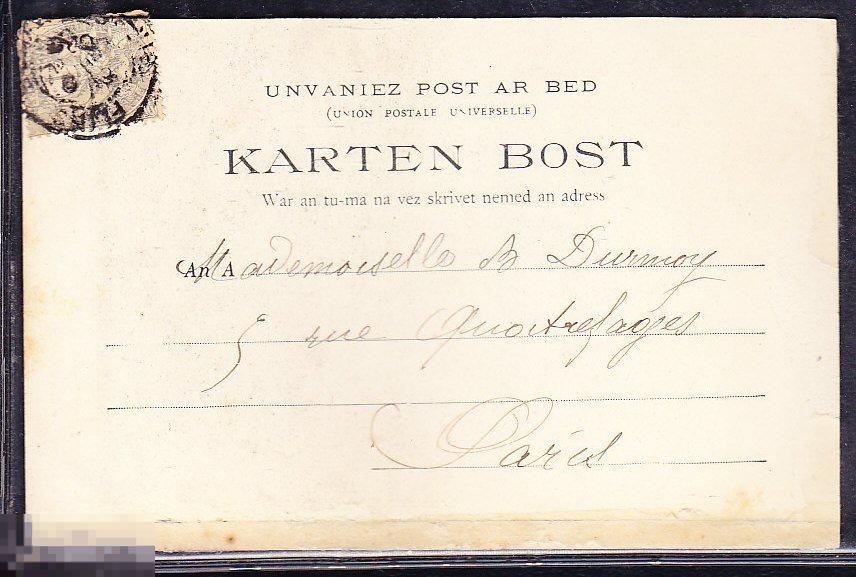 UNVANIEZ POST AR BED
(UNION POSTALE UNIVERSELLE)
KARTEN BOST
War an tu-ma na vez skrivet nemed an adress
An A
Mademoiselle B Durmoy
5 rue Quatrefages
Paris